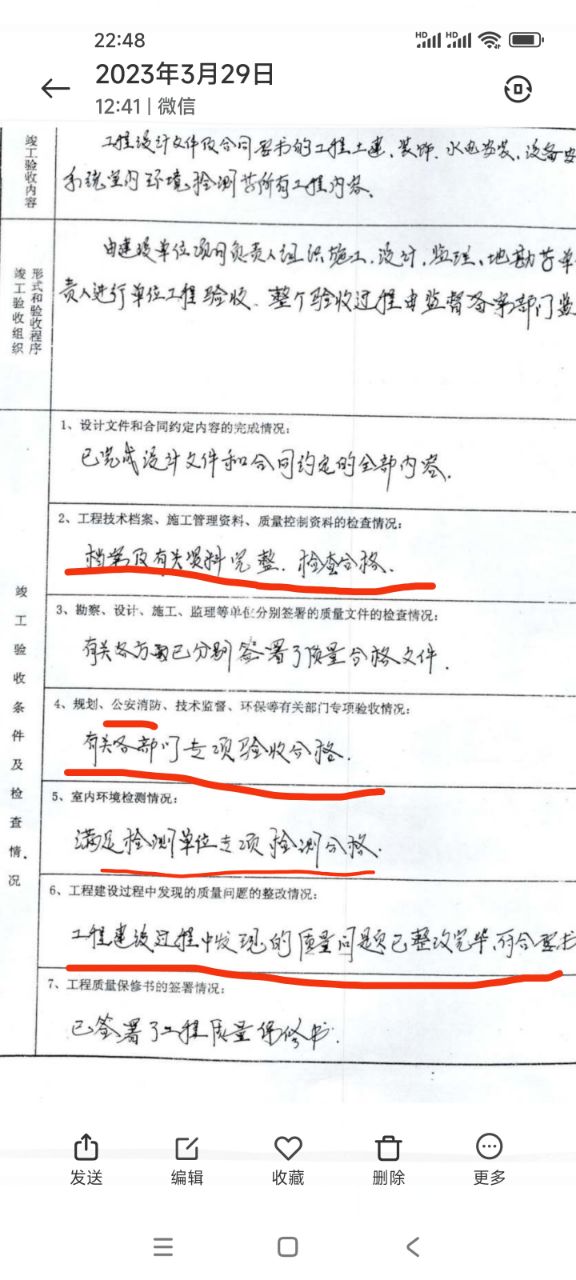 22:48
2023年3月29日
12:41 | 微信
竣工验收内容
工程设计文件及合同要求的工程土建、装饰、水电安装、设备安
系统室内环境检测等所有工程内容。
竣工验收组织
形式和验收程序
由建设单位项目负责人组织施工、设计、监理、地勘等单
责人进行单位工程验收、整个验收过程由监督备案部门监
竣工验收条件及检查情况
1、设计文件和合同约定内容的完成情况:
已完成设计文件和合同约定的全部内容.
2、工程技术档案、施工管理资料、质量控制资料的检查情况:
档案及有关资料完整、检查合格.
3、勘察、设计、施工、监理等单位分别签署的质量文件的检查情况:
有关各方面已分别签署了质量合格文件.
4、规划、公安消防、技术监督、环保等有关部门专项验收情况:
有关各部门专项验收合格.
5、室内环境检测情况:
满足检测单位专项检测合格.
6、工程建设过程中发现的质量问题的整改情况:
工程建设过程中发现的质量问题已整改完毕.符合要求
7、工程质量保修书的签署情况:
已签署了工程质量保修书.
发送
编辑
收藏
删除
更多